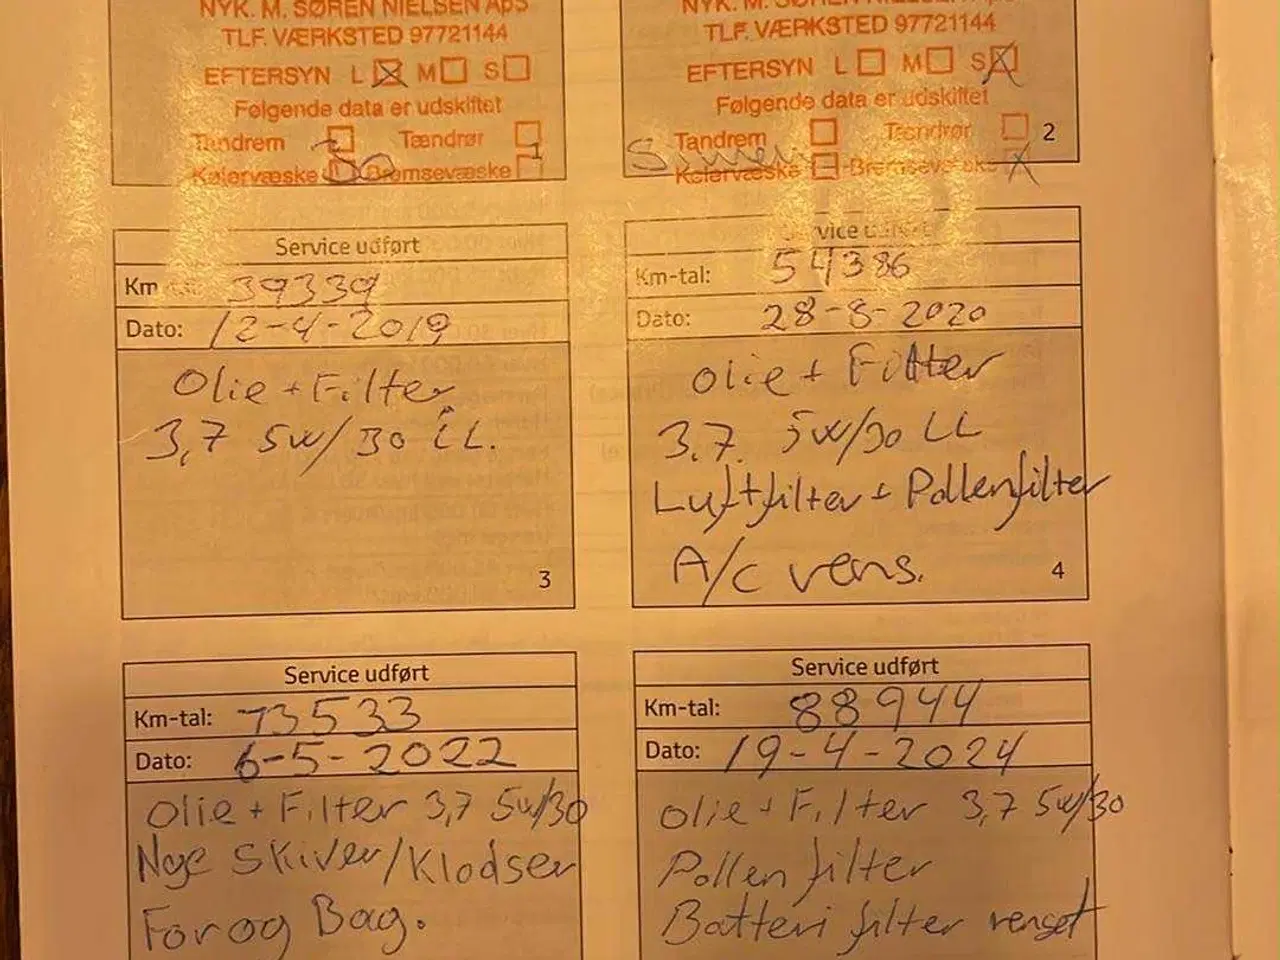 NYK. M. SØREN NIELSEN ApS
TLF. VÆRKSTED 97721144
EFTERSYN L M S
Følgende data er udskiftet
Tandrem Tændrør
Kølervæske Bremsevæske
1
NYK. M. SØREN NIELSEN ApS
TLF. VÆRKSTED 97721144
EFTERSYN L M S
Følgende data er udskiftet
Tandrem Tændrør
2
Kølervæske Bremsevæske
Service udført
39339
Dato: 12-4-2019
Olie + Filter
3,7 5W/30 LL.
3
Km-tal: 54386
Dato: 28-8-2020
Olie + Filter
3,7. 5W/30 LL
Luftfilter + Pollenfilter
A/C rens.
4
Service udført
Km-tal: 73533
Dato: 6-5-2022
Olie + Filter 3,7 5W/30
Nye Skiver/Klodser
For og Bag.
Service udført
Km-tal: 88944
Dato: 19-4-2024
Olie + Filter 3,7 5W/30
Pollenfilter
Batteri filter renset